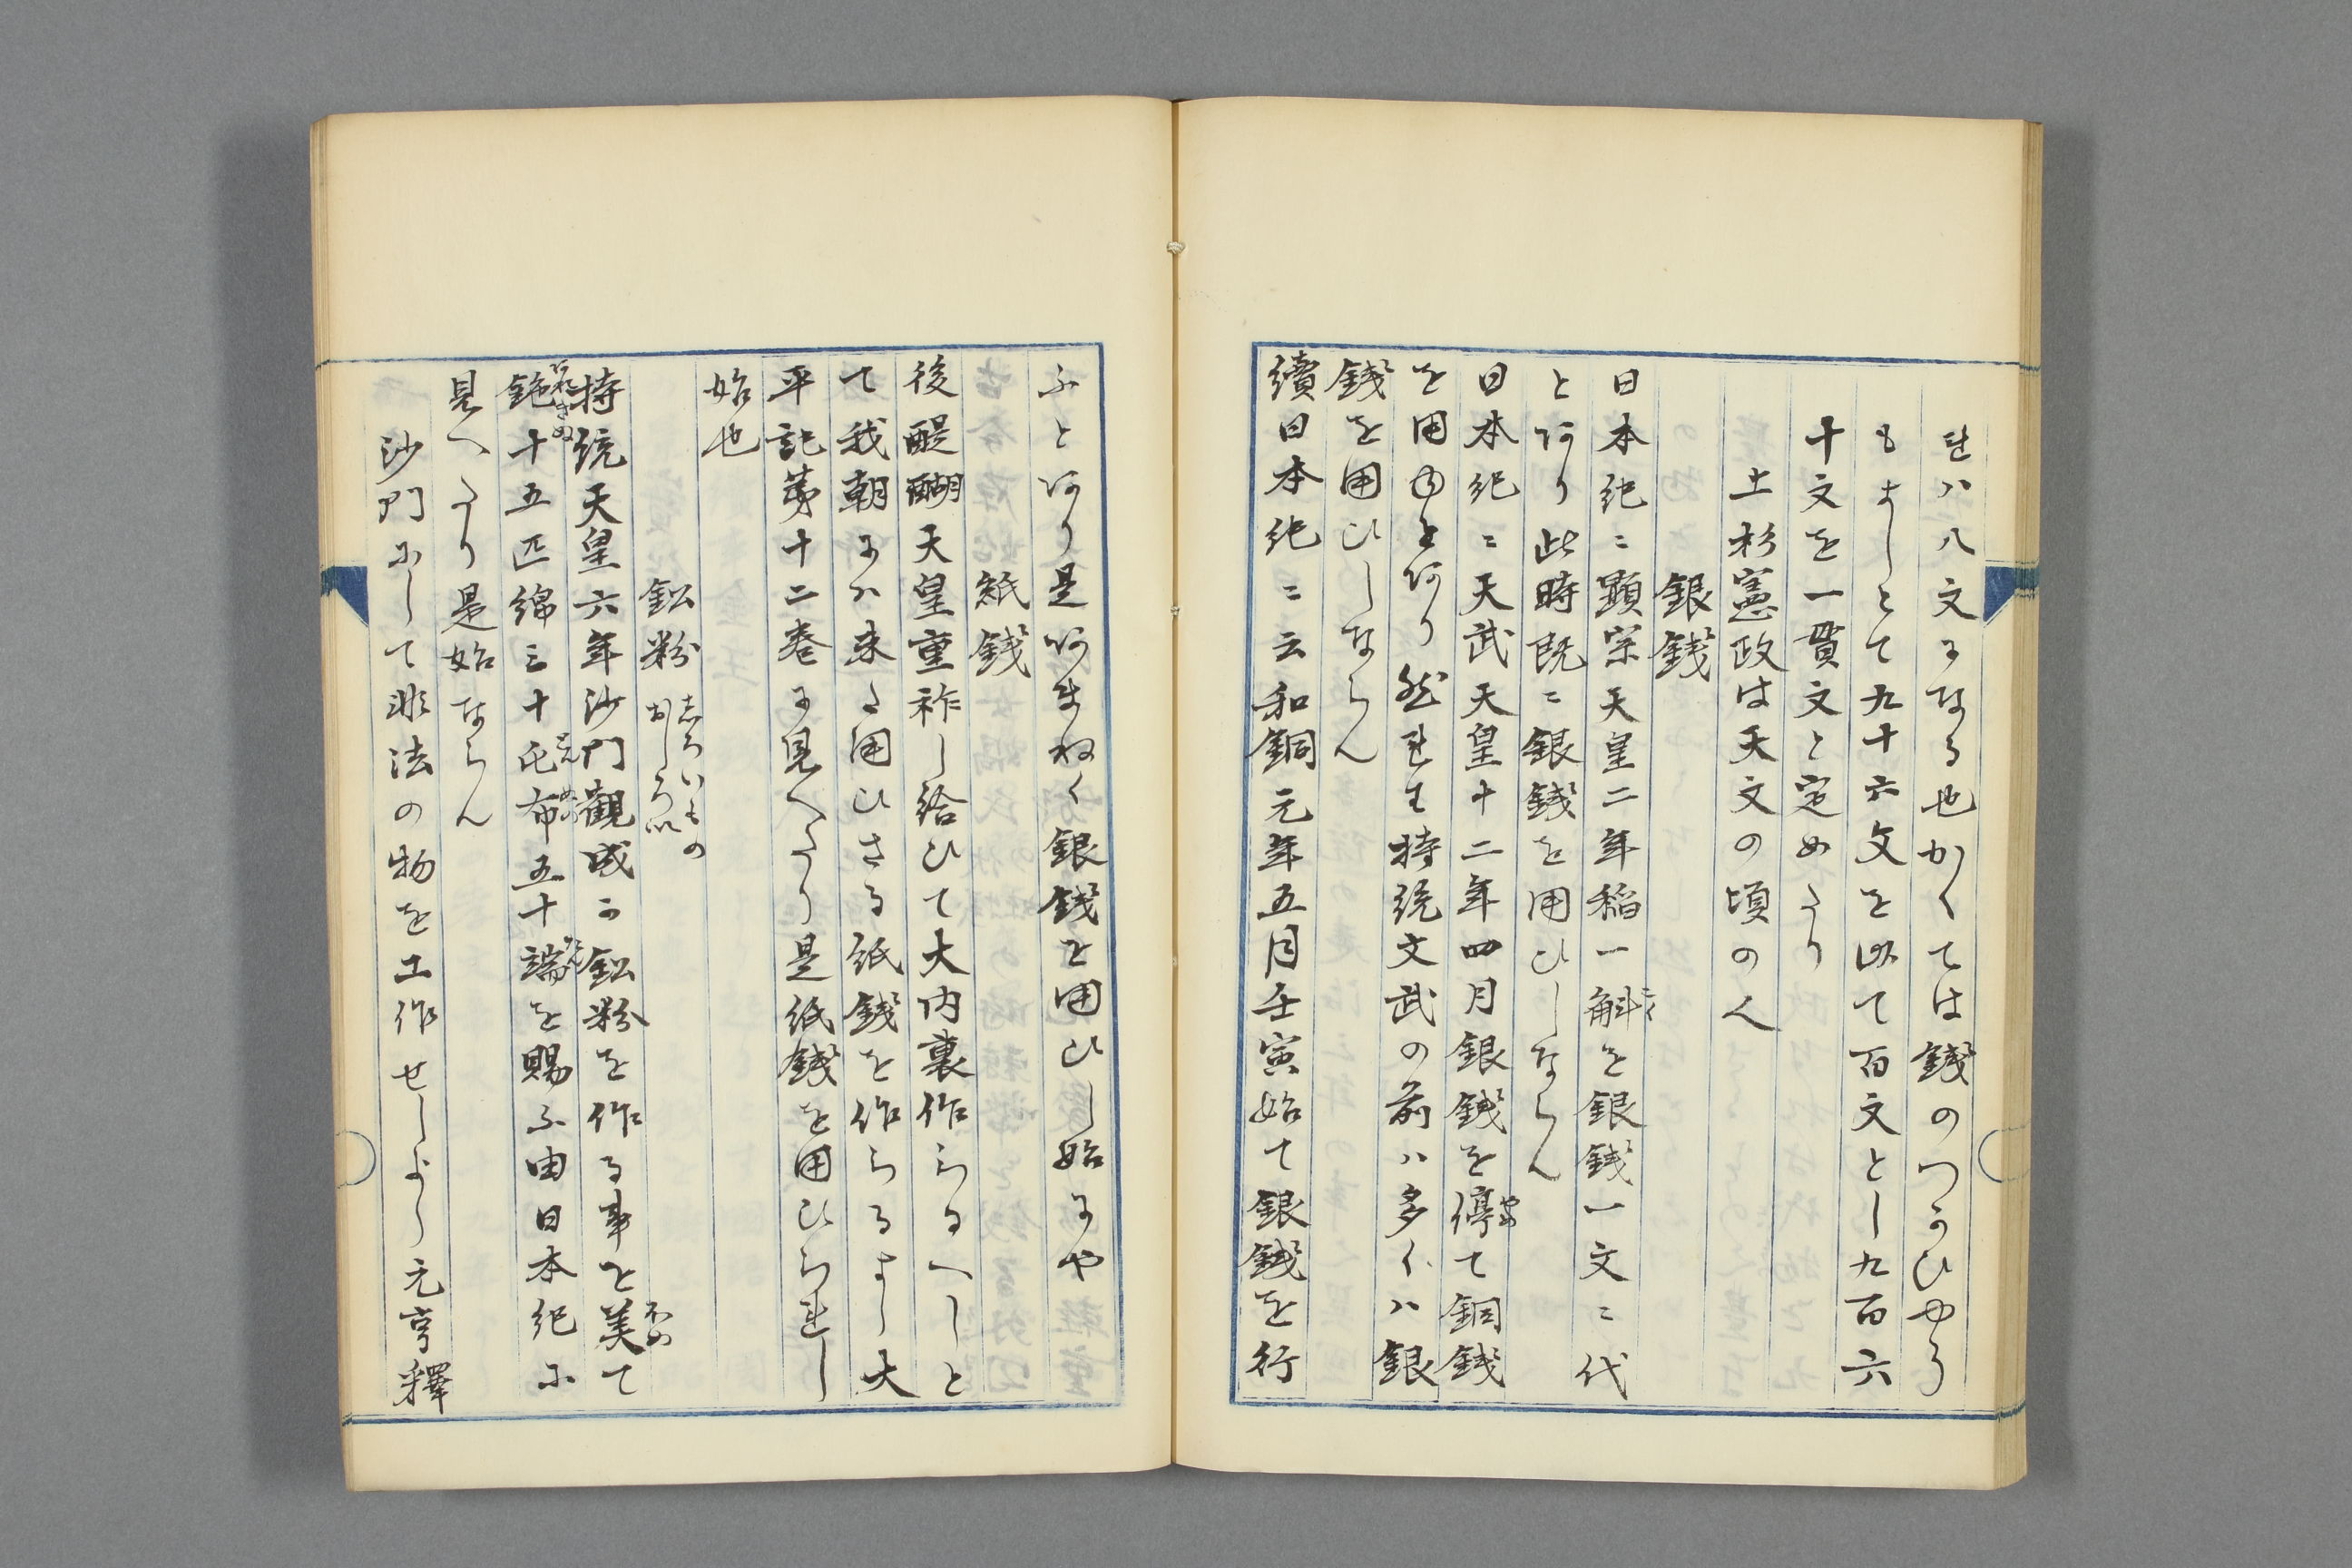 れハ八文になる也かくては錢のつかひやう
もよしとて九十六文を以て百文とし九百六
十文を一貫文と定めたり
上杉憲政は天文の頃の人
銀錢
日本紀ニ顕宗天皇二年稲一斛こくを銀錢一文ニ代
とあり此時既ニ銀錢を用ひしならん
日本紀ニ天武天皇十二年四月銀錢を停やめて銅錢
を用ゆとあり然れとも持統文武の前ハ多くハ銀
錢を用ひしならん
續日本紀ニ云和銅元年五月壬寅始て銀錢を行
ふとあり是あまねく銀錢を用ひし始にや
紙錢
後醍醐天皇重祚し給ひて大内裏作らるへしと
て我朝にハ未た用ひさる紙錢を作らるよし大
平記第十二巻に見へたり是紙錢を用ひられし
始也
鈆粉 しろいもの おしろい
持統天皇六年沙門觀成か鈆粉を作る事を美ほめて
絁十五匹綿三十屯とん布ぬの五十端たんを賜ふ由日本紀に
見へたり是始ならん
沙門にして非法の物を工作せしよし元亨釋